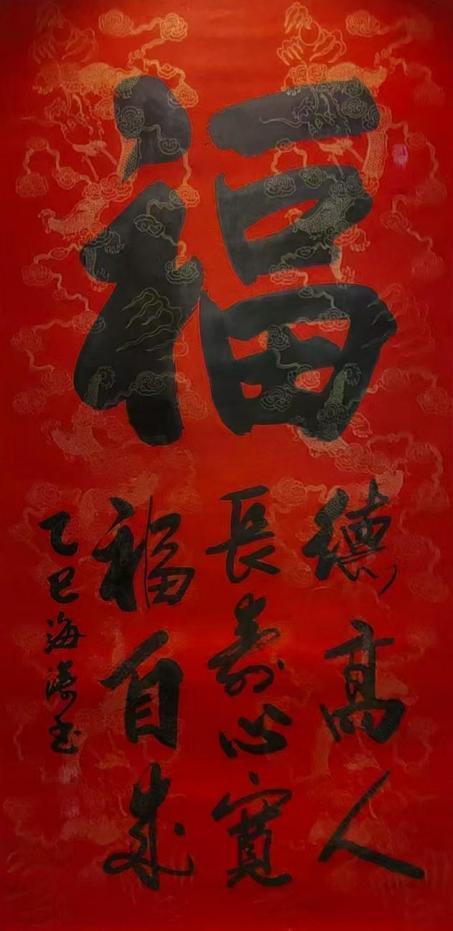 福
德高人
長壽心寬
福自來
乙巳海濤書